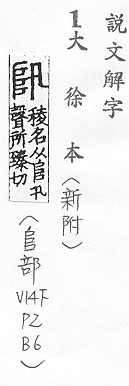 說文解字
1大徐本(新附)
阠
陵名从𨸏卂
聲所臻切
(𨸏部
V14下
P2
B6)